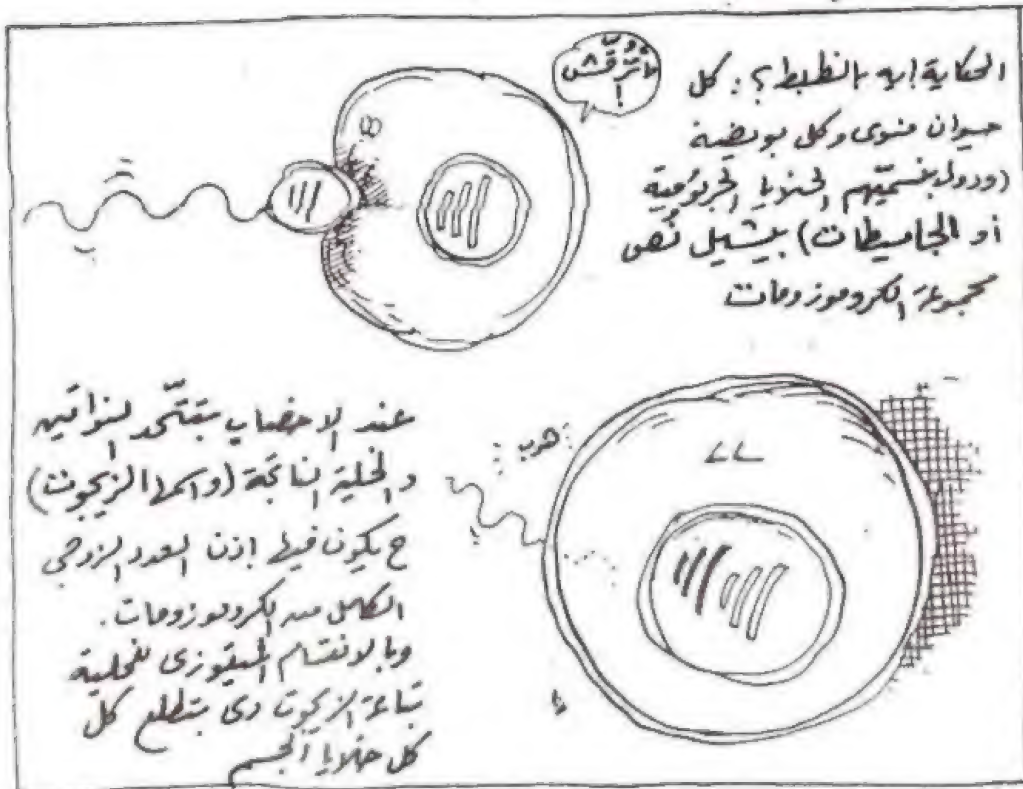 الحكاية إيه بالظبط؟: كل
حيوان منوى وكل بويضة
(ودول بنسميهم الخلايا الجرثومية
أو الجاميطات) بيشيل نُص
مجموعة الكروموزومات
عند الإخصاب بتتّحد النواتين
والخلية الناتجة (واسمها الزيجوت)
ح يكون فيها إذن العدد الزوجي
الكامل من الكروموزومات.
وبالانقسام الميتوزى للخلية
بتاعة الزيجوت دى بتطلع كل
كل خلايا الجسم